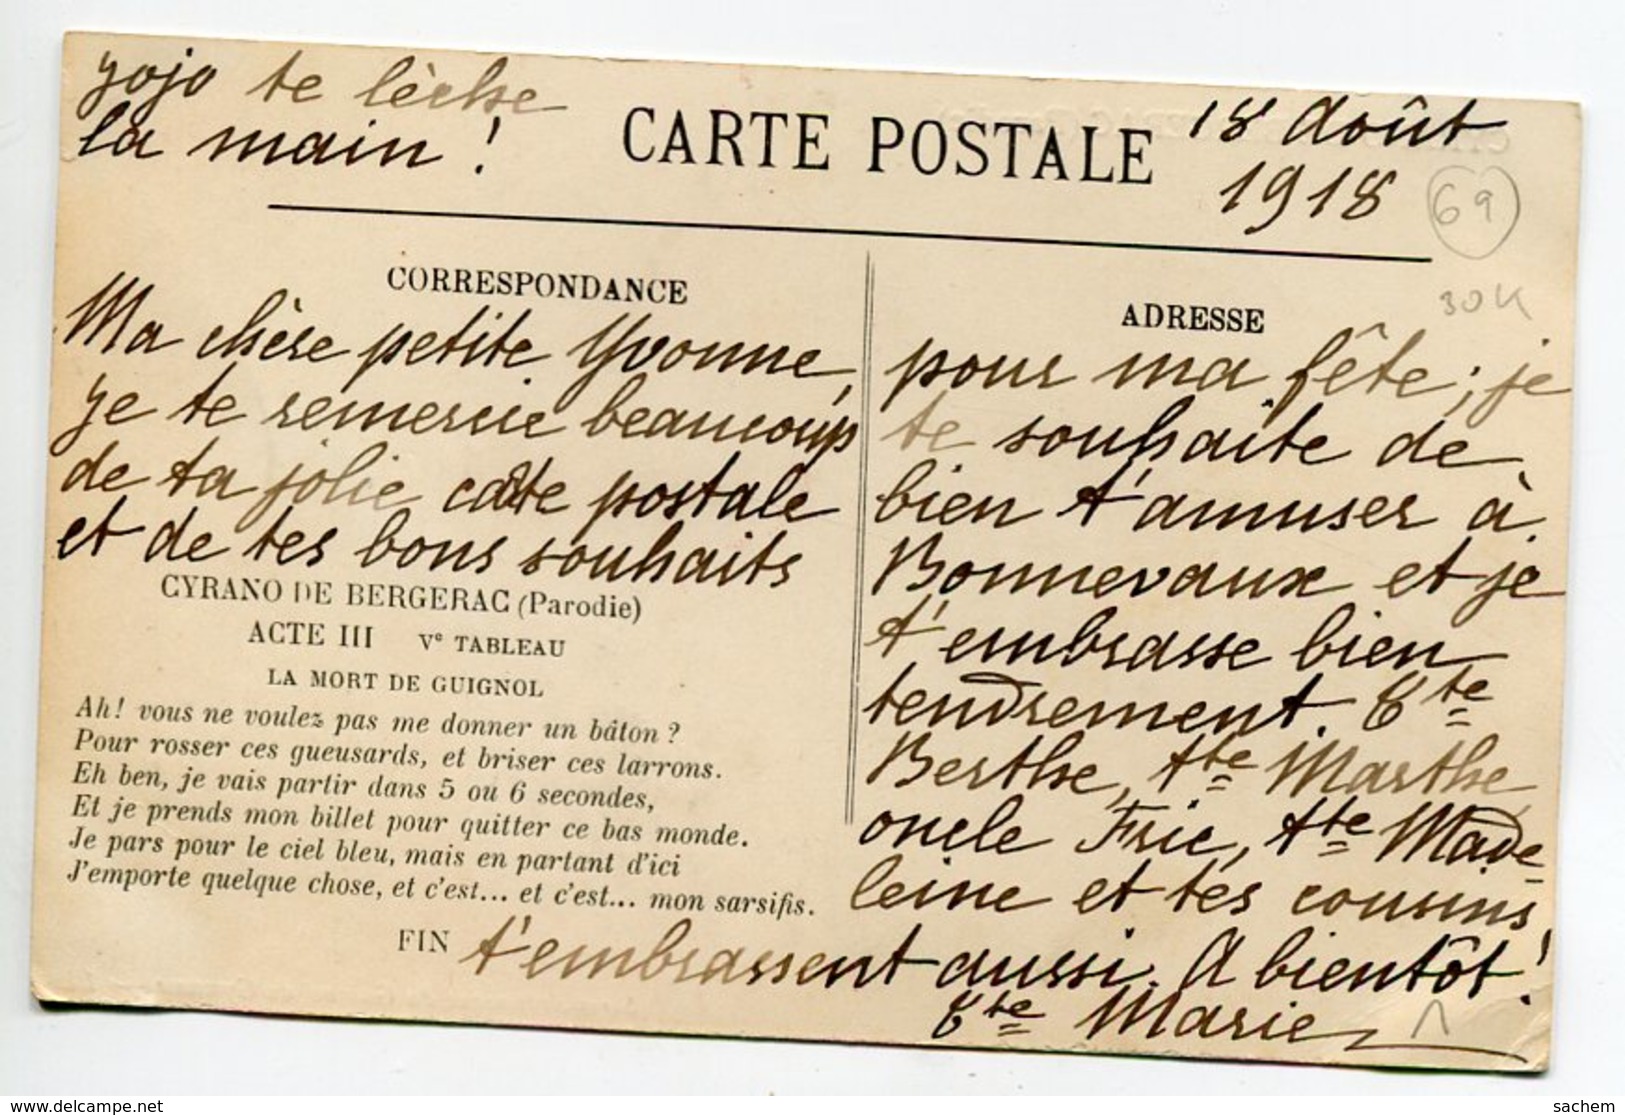 yojo te lèche
la main !
CARTE POSTALE
18 Août
1918
69
30
CORRESPONDANCE
Ma chère petite Yvonne,
je te remercie beaucoup
de ta jolie carte postale
et de tes bons souhaits
CYRANO DE BERGERAC (Parodie)
ACTE III Ve TABLEAU
LA MORT DE GUIGNOL
Ah! vous ne voulez pas me donner un bâton ?
Pour rosser ces gueusards, et briser ces larrons.
Eh ben, je vais partir dans 5 ou 6 secondes,
Et je prends mon billet pour quitter ce bas monde.
Je pars pour le ciel bleu, mais en partant d'ici
J'emporte quelque chose, et c'est... et c'est... mon sarsifis.
FIN
ADRESSE
pour ma fête ; je
te souhaite de
bien t'amuser à
Bonnevaux et je
t'embrasse bien
tendrement. Tte
Berthe, tte Marthe
oncle Fric, tte Made-
leine et tes cousins
t'embrassent aussi. A bientôt !
Tte Marie
delcampe.net
sachem